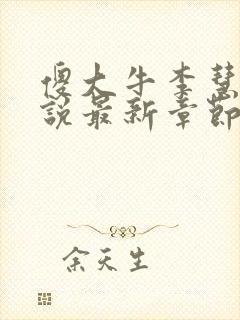 傻大牛李慧
说最新章节
余天生